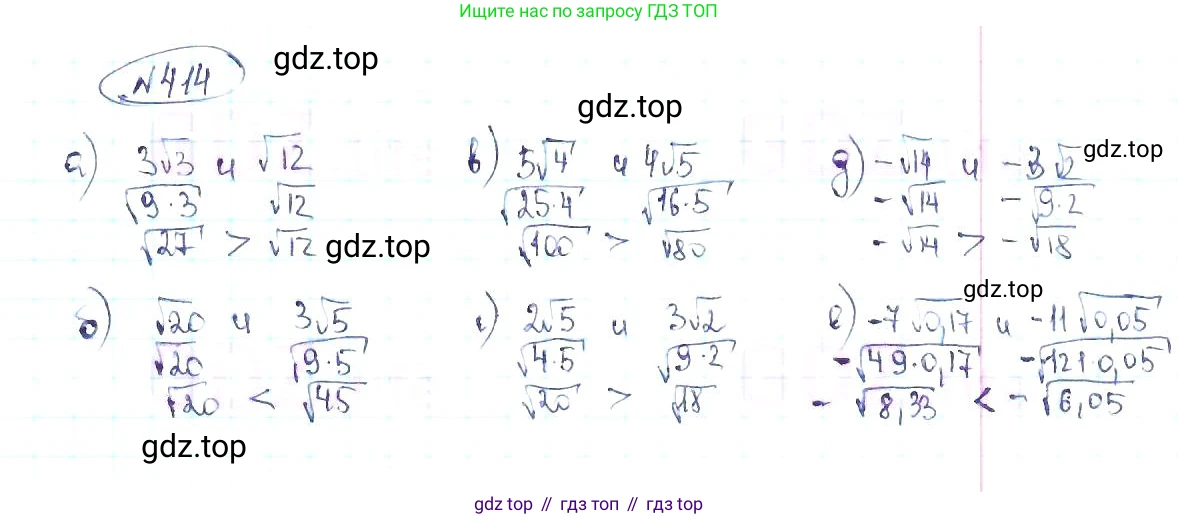 Ищите нас по запросу ГДЗ ТОП
№414
gdz.top
gdz.top
а) 3√3 и √12
√9·3 √12
√27 > √12
gdz.top
в) 5√4 и 4√5
√25·4 √16·5
√100 > √80
д) -√14 и -3√2
gdz.top
-√14 -√9·2
-√14 > -√18
б) √20 и 3√5
√20 √9·5
√20 < √45
gdz.top
г) 2√5 и 3√2
√4·5 √9·2
√20 > √18
gdz.top
е) -7√0,17 и -11√0,05
-√49·0,17 -√121·0,05
-√8,33 < -√6,05
gdz top // гдз топ // гдз top